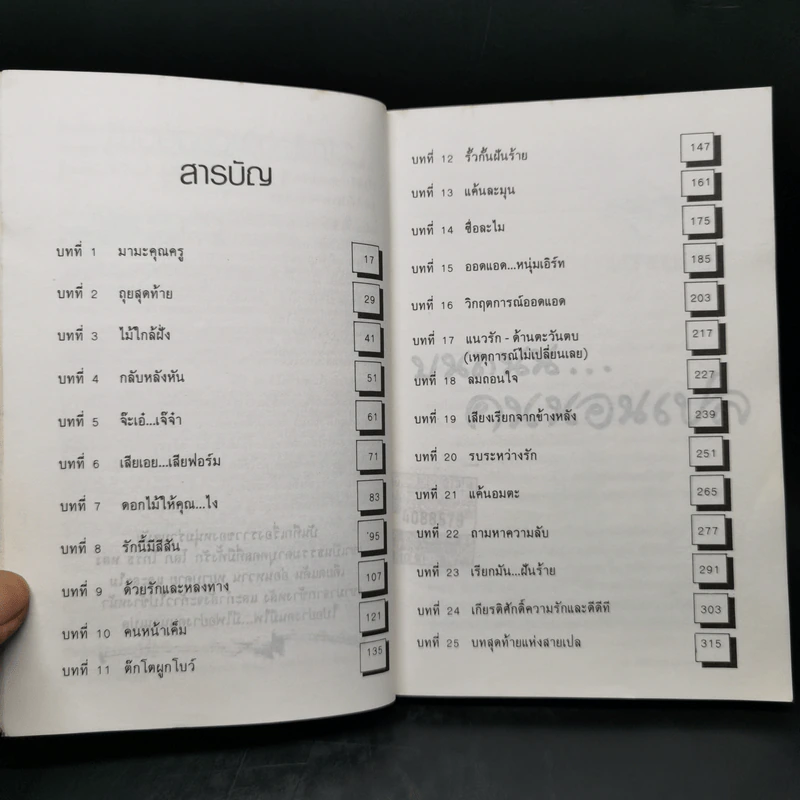 สารบัญ
บทที่ 1 มามะคุณครู 17
บทที่ 2 ถุยสุดท้าย 29
บทที่ 3 ไม้ใกล้ฝั่ง 41
บทที่ 4 กลับหลังหัน 51
บทที่ 5 จ๊ะเอ๋...เจ๊จ๋า 61
บทที่ 6 เสียเอย...เสียฟอร์ม 71
บทที่ 7 ดอกไม้ให้คุณ...ไง 83
บทที่ 8 รักนี้มีสีสัน 95
บทที่ 9 ด้วยรักและหลงทาง 107
บทที่ 10 คนหน้าเค็ม 121
บทที่ 11 ต๊กโตผูกโบว์ 135
บทที่ 12 รั้วกั้นฝันร้าย 147
บทที่ 13 แค้นละมุน 161
บทที่ 14 ชื่อละไม 175
บทที่ 15 ออดแอด...หนุ่มเอิร์ท 185
บทที่ 16 วิกฤตการณ์ออดแอด 203
บทที่ 17 แนวรัก - ด้านตะวันตบ 217
(เหตุการณ์ไม่เปลี่ยนเลย)
บทที่ 18 ลมถอนใจ 227
บทที่ 19 เสียงเรียกจากข้างหลัง 239
บทที่ 20 รบระหว่างรัก 251
บทที่ 21 แค้นอมตะ 265
บทที่ 22 ถามหาความลับ 277
บทที่ 23 เรียกมัน...ฝันร้าย 291
บทที่ 24 เกียรติศักดิ์ความรักและดีดีที 303
บทที่ 25 บทสุดท้ายแห่งสายเปล 315